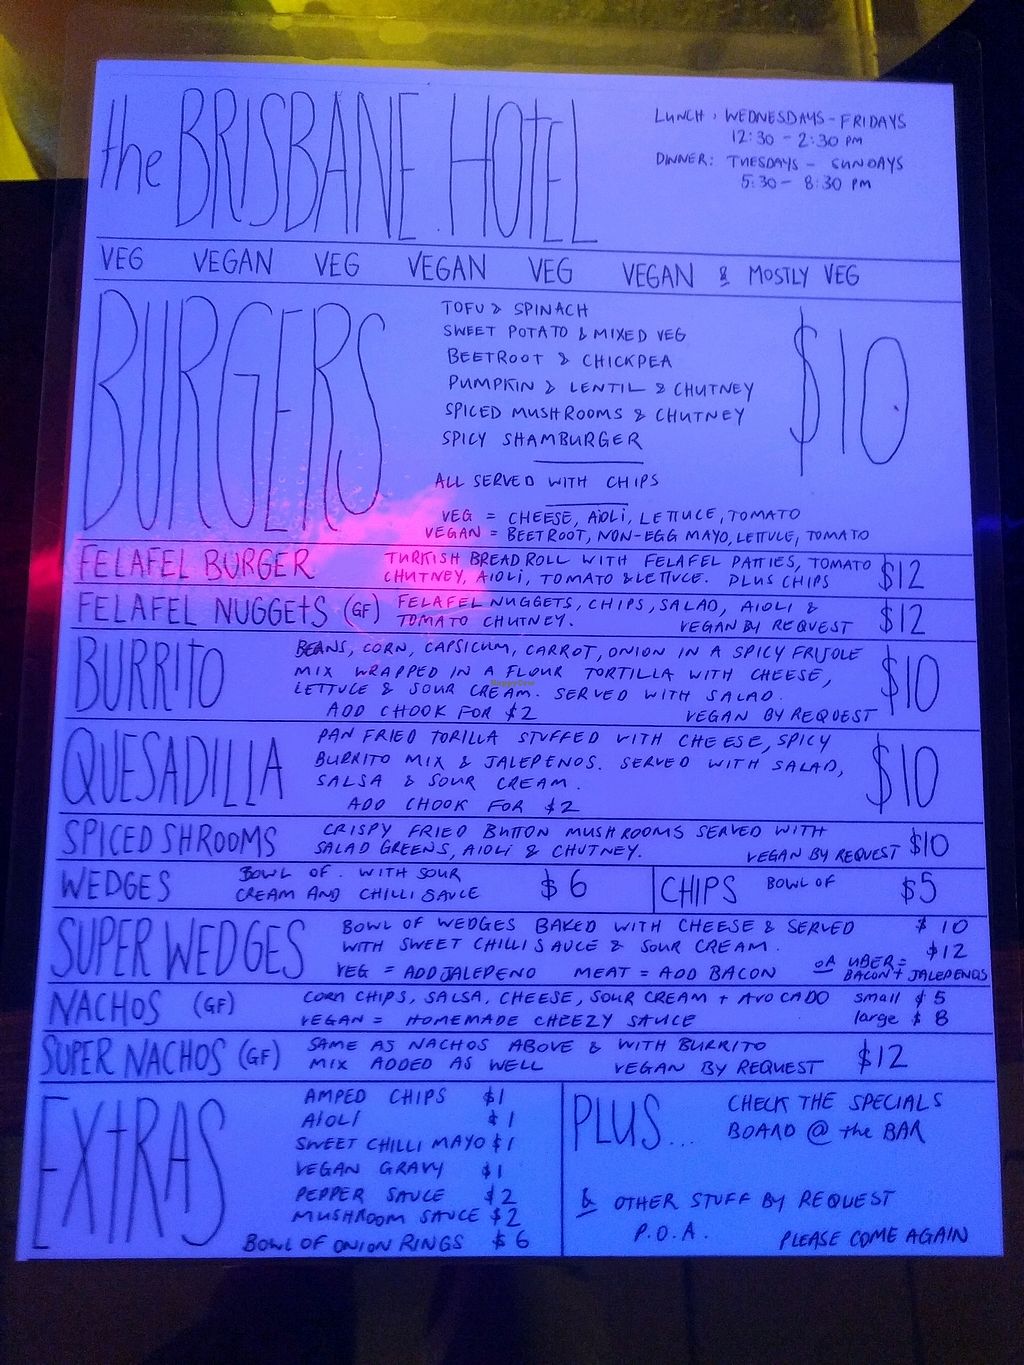 the BRISBANE HOTEL
LUNCH: WEDNESDAYS - FRIDAYS
12:30 - 2:30 PM
DINNER: TUESDAYS - SUNDAYS
5:30 - 8:30 PM
VEG VEGAN VEG VEGAN VEG VEGAN & MOSTLY VEG
BURGERS
TOFU & SPINACH
SWEET POTATO & MIXED VEG
BEETROOT & CHICKPEA
PUMPKIN & LENTIL & CHUTNEY
SPICED MUSHROOMS & CHUTNEY
SPICY SHAMBURGER
$10
ALL SERVED WITH CHIPS
VEG = CHEESE, AIOLI, LETTUCE, TOMATO
VEGAN = BEETROOT, NON-EGG MAYO, LETTUCE, TOMATO
FELAFEL BURGER
TURKISH BREAD ROLL WITH FELAFEL PATTIES, TOMATO
CHUTNEY, AIOLI, TOMATO & LETTUCE. PLUS CHIPS
$12
FELAFEL NUGGETS (GF)
FELAFEL NUGGETS, CHIPS, SALAD, AIOLI &
TOMATO CHUTNEY. VEGAN BY REQUEST
$12
BURRITO
BEANS, CORN, CAPSICUM, CARROT, ONION IN A SPICY FRIJOLE
MIX WRAPPED IN A FLOUR TORTILLA WITH CHEESE,
LETTUCE & SOUR CREAM. SERVED WITH SALAD.
ADD CHOOK FOR $2 VEGAN BY REQUEST
$10
QUESADILLA
PAN FRIED TORILLA STUFFED WITH CHEESE, SPICY
BURRITO MIX & JALEPENOS. SERVED WITH SALAD,
SALSA & SOUR CREAM.
ADD CHOOK FOR $2
$10
SPICED SHROOMS
CRISPY FRIED BUTTON MUSHROOMS SERVED WITH
SALAD GREENS, AIOLI & CHUTNEY. VEGAN BY REQUEST
$10
WEDGES
BOWL OF. WITH SOUR
CREAM AND CHILLI SAUCE
$6
CHIPS BOWL OF $5
SUPER WEDGES
BOWL OF WEDGES BAKED WITH CHEESE & SERVED
WITH SWEET CHILLI SAUCE & SOUR CREAM.
VEG = ADD JALEPENO MEAT = ADD BACON
$10
$12
OR UBER =
BACON + JALEPENOS
NACHOS (GF)
CORN CHIPS, SALSA, CHEESE, SOUR CREAM + AVOCADO
VEGAN = HOMEMADE CHEEZY SAUCE
small $5
large $8
SUPER NACHOS (GF)
SAME AS NACHOS ABOVE & WITH BURRITO
MIX ADDED AS WELL VEGAN BY REQUEST
$12
EXTRAS
AMPED CHIPS $1
AIOLI $1
SWEET CHILLI MAYO $1
VEGAN GRAVY $1
PEPPER SAUCE $2
MUSHROOM SAUCE $2
BOWL OF ONION RINGS $6
PLUS...
CHECK THE SPECIALS
BOARD @ the BAR
& OTHER STUFF BY REQUEST
P.O.A.
PLEASE COME AGAIN
HappyCow